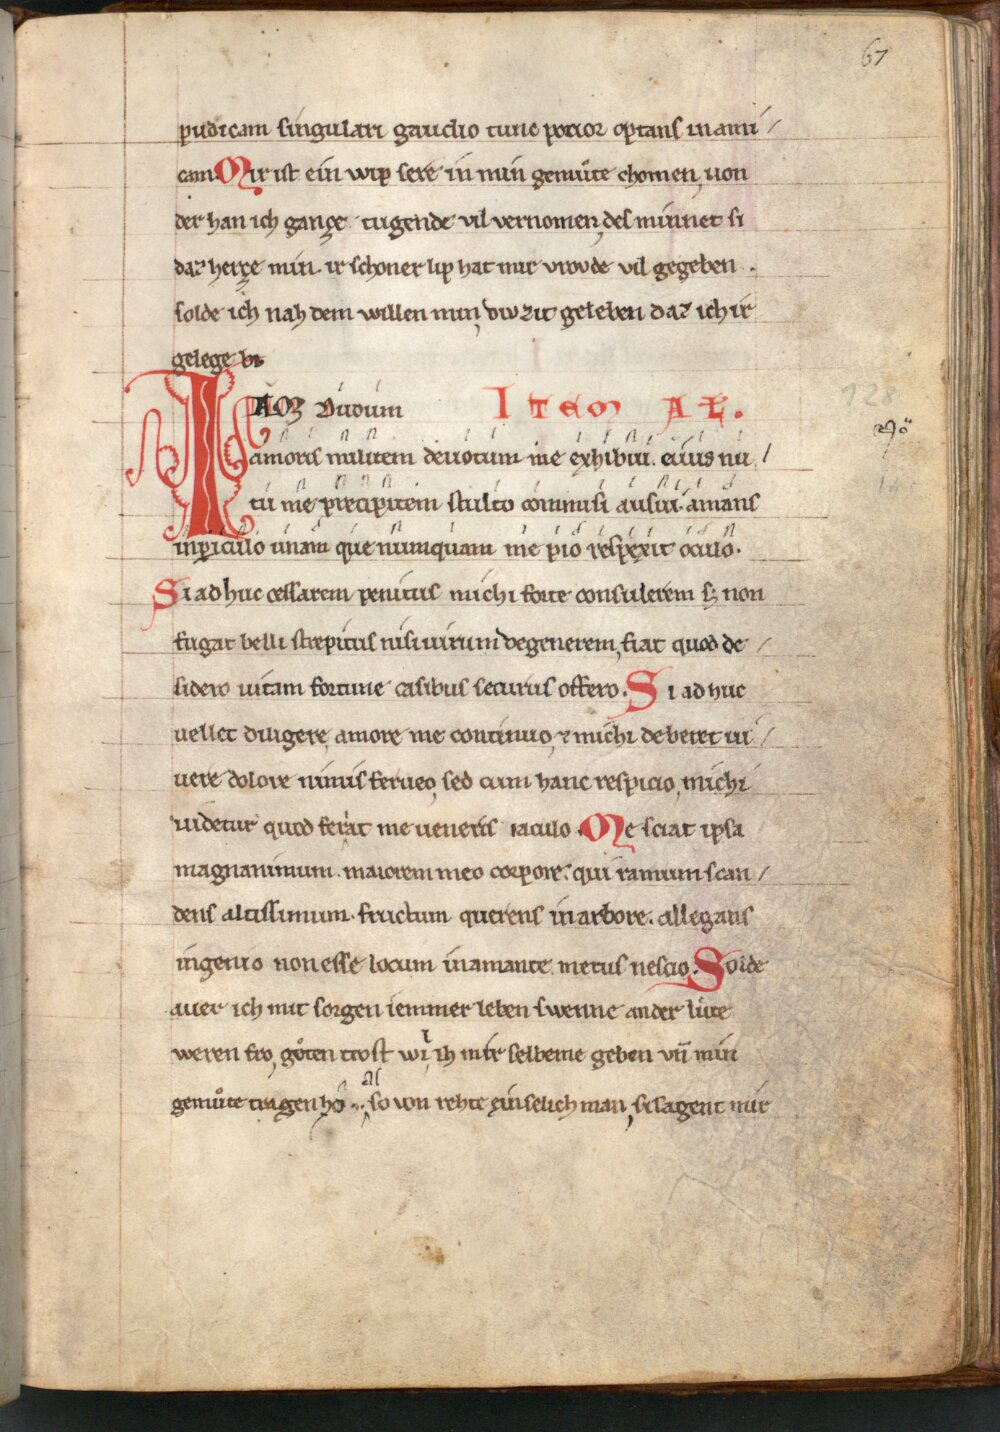 67
pudicam singulari gaudio tunc potior optans in ami /
cam. Mir ist ein wip sere in min gemůte chomen, uon
der han ich ganze tugende vil vernomen, des minnet si
daz herze min. ir schoner lip hat mir vroude vil gegeben.
solde ich nah dem willen min, div zit geleben daz ich ir
gelege bi
Iam dudum ITEM AL.
amoris militem deuotum me exhibui. cuius nu /
tu me precipitem stulto commisi ausui. amans
in periculo unam que numquam me pio respexit oculo.
Si ad huc cessarem penitus michi forte consulerem sz non
fugat belli strepitus nisi uirum degenerem, fiat quod de /
sidero uitam fortune casibus securus offero. Si ad huc
vellet diligere, amore me continuo, ⁊ michi deberet ui /
uere dolore nimis ferueo, sed cum hanc respicio, michi
uidetur quod ferat me ueneris iaculo. Me sciat ipsa
magnanimum. maiorem meo corpore. qui ramum scan /
dens altissimum. fructum querens in arbore. allegans
ingenio non esse locum in amante metus nescio. Solde
auer ich mit sorgen iemmer leben swenne ander lůte
weren fro, gůten trost wil ih mir selbeme geben vñ min
gemůte tragen ho. also von rehte ein selich man, si sagent mir